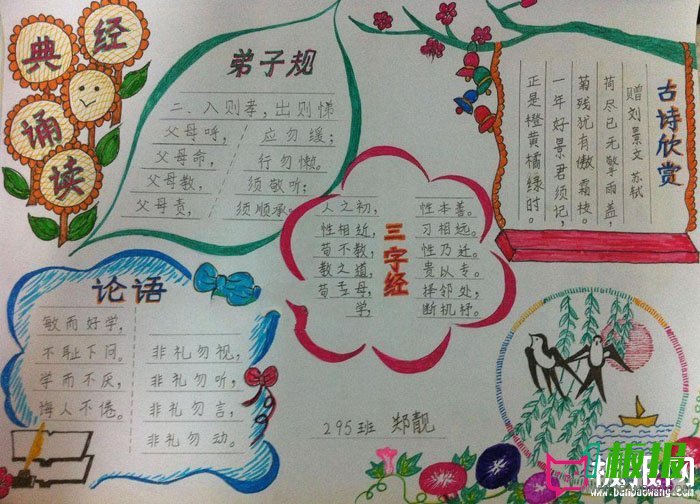 经典
诵读
弟子规
二、入则孝,出则悌
父母呼, 应勿缓;
父母命, 行勿懒。
父母教, 须敬听;
父母责, 须顺承。
古诗欣赏
赠刘景文 苏轼
荷尽已无擎雨盖,
菊残犹有傲霜枝。
一年好景君须记,
正是橙黄橘绿时。
三字经
人之初, 性本善。
性相近, 习相远。
苟不教, 性乃迁。
教之道, 贵以专。
昔孟母, 择邻处,
学, 断机杼。
论语
敏而好学,
不耻下问。
学而不厌,
诲人不倦。
非礼勿视,
非礼勿听,
非礼勿言,
非礼勿动。
295班 郑靓
板报网
www.banbaowang.com